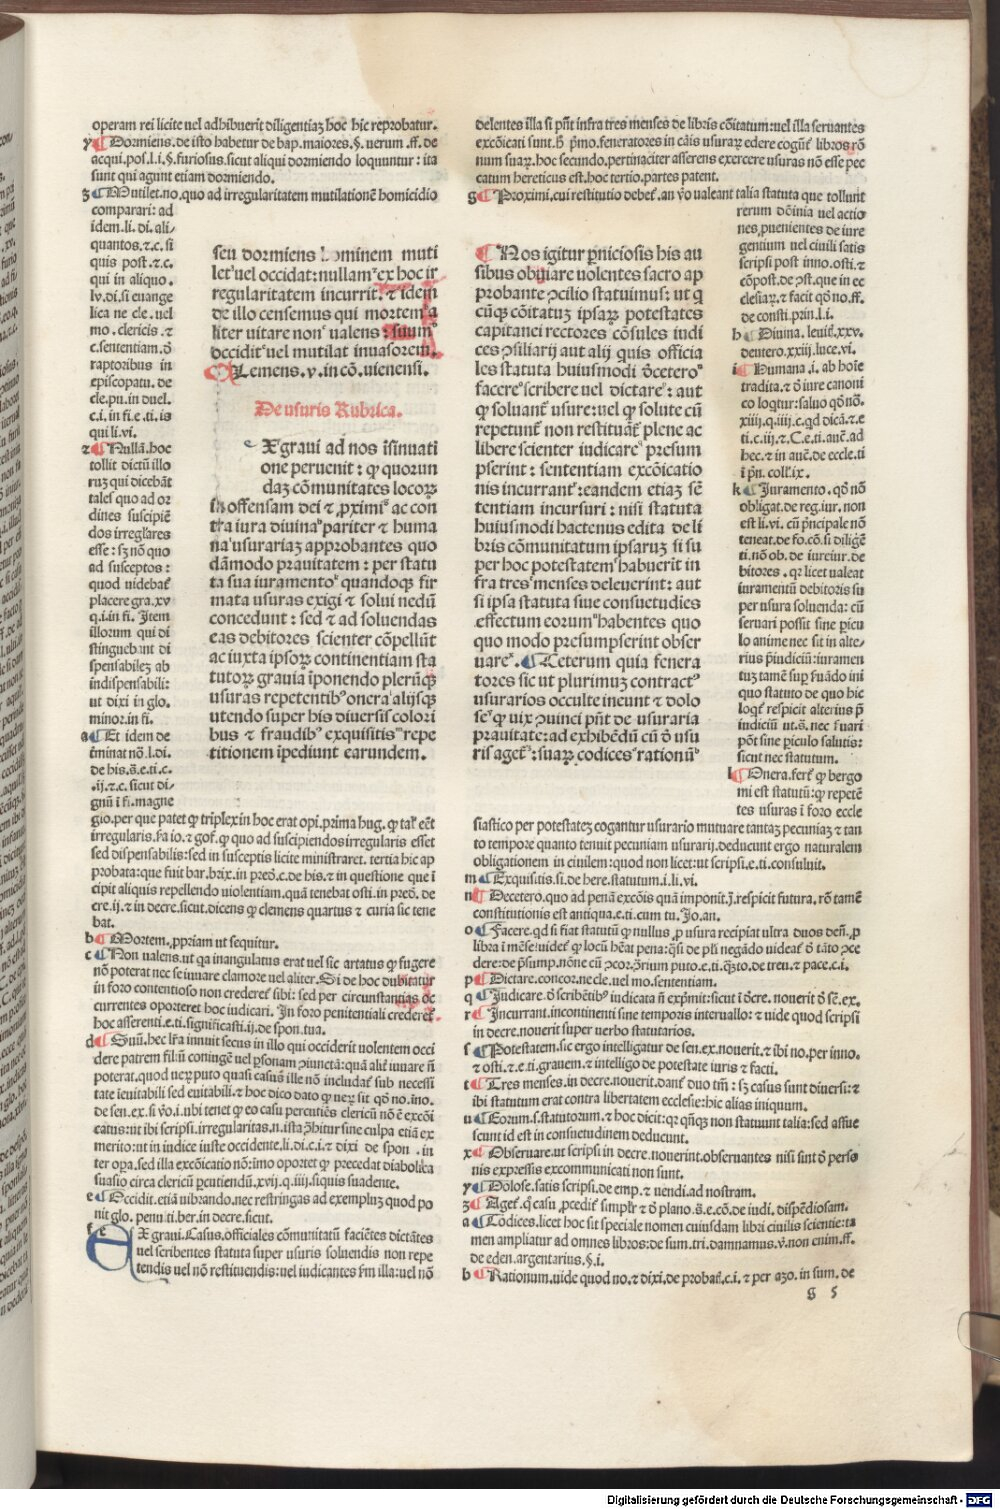 operam rei licite uel adhibuerit diligentiaz hoc hic reprobatur.
y Dormiens. de isto habetur de bap. maiores. §. uerum. ff. de
acqui. pos. l. i. §. furiosus. sicut aliqui dormiendo loquuntur : ita
sunt qui agunt etiam dormiendo.
z Mutilet. no. quo ad irregularitatem mutilationē homicidio
comparari: ad
idem. li. di. ali-
quantos. ⁊. c. si
quis post. ⁊. c.
qui in aliquo.
lv. di. si euange
lica ne cle. uel
mo. clericis. ⁊
c. sententiam. ð
raptoribus in
episcopatu. de
cle. pu. in duel.
c. i. in fi. e. ti. is
qui li. vi.
⁊ Nullā. hoc
tollit dictū illo
ruꝫ qui dicebāt
tales quo ad or
dines suscipiē
dos irregl'ares
esse : sꝫ nō quo
ad susceptos :
quod uidebat᷑
placere gra. xv
q. i. in fi. Item
illorum qui di
stinguebant di
spensabileꝫ ab
indispensabili:
ut dixi in glo.
minor. in fi.
a Et idem de
t̄minat nō. l. di.
de his. s̄. e. ti. c.
. ij. ⁊. c. sicut di-
gnū ī fi. magne
seu dormiens hominem muti
letˢ uel occidat: nullamᶻ ex hoc ir
regularitatem incurrit. ⁊ idem
de illo censemus qui mortemᵇ a
liter uitare nonᶜ ualens : suumᵈ
occiditᵉ uel mutilat inuasorem.
Clemens. v. in cō. uienensi.
De usuris Rubrica.
EX graui ad nos īsinuati
one peruenit : qꝫ quorun
daꝫ cōmunitates locorꝫ
in offensam dei ⁊ ꝓximiᵍ ac con
tra iura diuinaʰ pariter ⁊ huma
naⁱ usurariaꝫ approbantes quo
dāmodo prauitatem : per statu
ta sua iuramentoᵏ quandoqꝫ fir
mata usuras exigi ⁊ solui nedū
concedunt : sed ⁊ ad soluendas
eas debitores scienter cōpellūt
ac iuxta ipsorꝫ continentiam sta
tutorꝫ grauia īponendo plerūqꝫ
usuras repetentibꝰ oneraˡ alijsqꝫ
utendo super his diuersis colori
bus ⁊ fraudibꝰ exquisitisᵐ repe
titionem īpediunt earundem.
gio. per que patet ꝙ triplex in hoc erat opi. prima hug. ꝙ tal' eēt
irregularis. s̄a io. ⁊ gof. ꝙ quo ad suscipiendos irregularis esset
sed dispensabilis: sed in susceptis licite ministraret. tertia hic ap
probata: que fuit bar. brix. in preō. c. de his. ⁊ in questione que ī
cipit aliquis repellendo uiolentiam. quā tenebat osti. in preō. de
cre. ij. ⁊ in decre. sicut. dicens ꝙ clemens quartus ⁊ curia sic tene
bat.
b Mortem. ꝓpriam ut sequitur.
c Non ualens. ut qa inangulatus erat uel sic artatus ꝙ fugere
nō poterat nec se iuuare clamore uel aliter. Si de hoc dubitatur
in foro contentioso non crederet᷑ sibi: sed per circumstantias oc
currentes oporteret hoc iudicari. In foro penitentiali crederet᷑
hoc asserenti. e. ti. significasti. ij. de spon. tua.
d Suū. hec l'ra innuit secus in illo qui occiderit uolentem occi
dere patrem filiū coniugē uel ꝑsonam ꝯiunctā: quā alit᷑ iuuare ñ
poterat. quod uerꝫ puto quasi casus ille nō includat᷑ sub necessi
tate īeuitabili sed euitabili. ⁊ hoc dico dato ꝙ uerꝫ sit qð no. īno.
de sen. ex. si ṽo. i. ubi tenet ꝙ eo casu percutiēs clericū nō ē excōi
catus: ut ibi scripsi. irregularitas. n. ista ꝓ̄hitur sine culpa etiā ex
merito: ut in iudice iuste occidente. li. di. c. i. ⁊ dixi de spon. in
ter oꝑa. sed illa excōicatio nō: īmo oportet ꝙ precedat diabolica
suasio circa clericū ꝑcutiendū. xvij. q. iiij. siquis suadente.
e Occidit. etiā uibrando. nec restringas ad exempluꝫ quod po
nit glo. penu. ti. ber. in decre. sicut.
f EX graui. Casus. officiales cōmunitatū faciētes dictātes
uel scribentes statuta super usuris soluendis non repe
tendis uel nō restituendis: uel iudicantes s̄m illa: uel nō
delentes illa si pn̄t infra tres menses de libris cōitatum: uel illa seruantes
excōicati sunt. h̄ p̄mo. feneratores in cāis usurarꝫ edere cogunt᷑ libros rō
num suarꝫ. hoc secundo. pertinaciter asserens exercere usuras nō esse pec
catum hereticus est. hoc tertio. partes patent.
g Proximi, cui restitutio debet᷑. an ṽo ualeant talia statuta que tollunt
rerum dōinia uel actio
nes, ꝓuenientes de iure
gentium uel ciuili satis
scripsi post inno. osti. ⁊
cōpost. de ꝯst. que in ec
clesiarꝫ. ⁊ facit qð no. ff.
de consti. prin. l. i.
h Diuina. leuit̄. xxv.
deutero. xxiij. luce. vi.
i Humana. i. ab hoīe
tradita. ⁊ ð iure canoni
co loqtur: saluo qð nō.
xiiij. q. iij. c. qd dicā. ⁊ e
ti. c. iij. ⁊. C. e. ti. auē. ad
hec. ⁊ in auē. de eccle. ti
ī p̄n. coll'. ix.
k Iuramento. qð nō
obligat. de reg. iur. non
est li. vi. cū p̄ncipale nō
teneat. de fo. cō. si diligē
ti. nō ob. de iureiur. de
bitores. qꝛ licet ualeat
iuramentū debitoris su
per usura soluenda: cū
seruari possit sine ꝑicu
lo anime nec sit in alte-
rius p̄iudiciū: iuramen
tuꝫ tamē suꝑ s̄uādo ini
quo statuto de quo hic
loqt᷑ respicit alterius p̄
iudiciū ut. s̄. nec s̄uari
pōt sine ꝑiculo salutis:
sicut nec statutum.
l Onera. fert᷑ ꝙ bergo
mi est statutū: ꝙ repetē
tes usuras ī foro eccle
Nos igitur ꝑniciosis his au
sibus obuiare uolentes sacro ap
probante ꝯcilio statuimus: ut q
cūqꝫ cōitatuꝫ ipsarꝫ potestates
capitanei rectores cōsules iudi
ces ꝯsiliarij aut alij quis officia
les statuta huiusmodi ðceteroⁿ
facereᵒ scribere uel dictareᵖ : aut
ꝙ soluant᷑ usure: uel ꝙ solute cū
repetunt᷑ non restituāt᷑ plene ac
libere scienter iudicareq presum
pserint : sententiam excōicatio
nis incurrantʳ : eandem etiaꝫ sē
tentiam incursuri : nisi statuta
huiusmodi hactenus edita de li
bris cōmunitatum ipsaruꝫ si su
per hoc potestatemˢ habuerit in
fra tresᵗ menses deleuerint: aut
si ipsa statuta siue consuetudies
effectum eorumᵘ habentes quo
quo modo presumpserint obser
uareˣ. Ceterum quia fenera
tores sic ut plurimuꝫ contractꝰ
usurarios occulte ineunt ⁊ dolo
seʸ ꝙ uix ꝯuinci pn̄t de usuraria
prauitate: ad exhibēdū cū ð usu
ris aget᷑ᶻ: suarꝫ codicesᵃ rationūᵇ
siastico per potestateꝫ cogantur usurario mutuare tantaꝫ pecuniaꝫ ⁊ tan
to tempore quanto tenuit pecuniam usurarij. deducunt ergo naturalem
obligationem in ciuilem: quod non licet: ut scripsi. e. ti. consuluit.
m Exquisitis. si. de here. statutum. i. li. vi.
n Decetero. quo ad penā excōis quā imponit. ī. respicit futura. rō tamē
constitutionis est antiqua. e. ti. cum tu. Jo. an.
o Facere. qd si fiat statutū ꝙ nullus ꝓ usura recipiat ultra duos deñ. ꝑ
libra ī mēse: uidet᷑ ꝙ locū hēat pena: qꝛ si de pl'i negādo uideat᷑ ð tāto ꝯce
dere: de p̄sump. nōne cū ꝯcor. ꝯ̄rium puto. e. ti. q̄ꝫto. de treu. ⁊ pace. c. i.
p Dictare. concor. ne cle. uel mo. sententiam.
q Iudicare. ð scribētibꝰ iudicata ñ exp̄mit: sicut ī ðcre. nouerit ð sē. ex.
r Incurrant. incontinenti sine temporis interuallo: ⁊ uide quod scripsi
in decre. nouerit super uerbo statutarios.
s Potestatem. sic ergo intelligatur de sen. ex. nouerit. ⁊ ibi no. per inno.
⁊ osti. ⁊ e. ti. grauem. ⁊ intelligo de potestate iuris ⁊ facti.
t Tres menses. in decre. nouerit. dant᷑ duo tm̄ : sꝫ casus sunt diuersi: ⁊
ibi statutum erat contra libertatem ecclesie: hic alias iniquum.
u Eorum. s. statutorum. ⁊ hoc dicit: qꝛ qn̄qꝫ non statuunt talia: sed assue
scunt id est in consuetudinem deducunt.
x Obseruare. ut scripsi in decre. nouerint. obseruantes nisi sint ð perso
nis expressis excommunicati non sunt.
y Dolose. satis scripsi. de emp. ⁊ uendi. ad nostram.
z Aget᷑. q̄ casu ꝓcedit᷑ simpl'r ⁊ ð plano. s̄. e. cō. de iudi. dispēdiosam.
a Codices. licet hoc sit speciale nomen cuiusdam libri ciuilis scientie: ta
men ampliatur ad omnes libros: de sum. tri. damnamus. ṽ. non enim. ff.
de eden. argentarius. §. i.
b Rationum. uide quod no. ⁊ dixi. de probat̄. c. i. ⁊ per azo. in sum. de
g 5
Digitalisierung gefördert durch die Deutsche Forschungsgemeinschaft - DFG